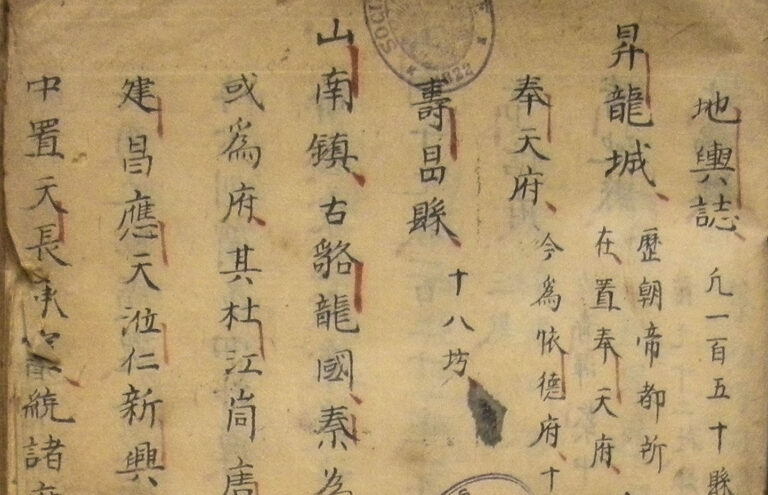 地輿誌 凢一百五十縣
昇龍城 歷朝帝都所
在置奉天府
奉天府 今爲懷德府十
壽昌縣 十八坊
山南鎮古貉龍國秦為
或爲府其杜江尚唐
建昌應天涖仁新興
中置天長統諸
SOCI
1822